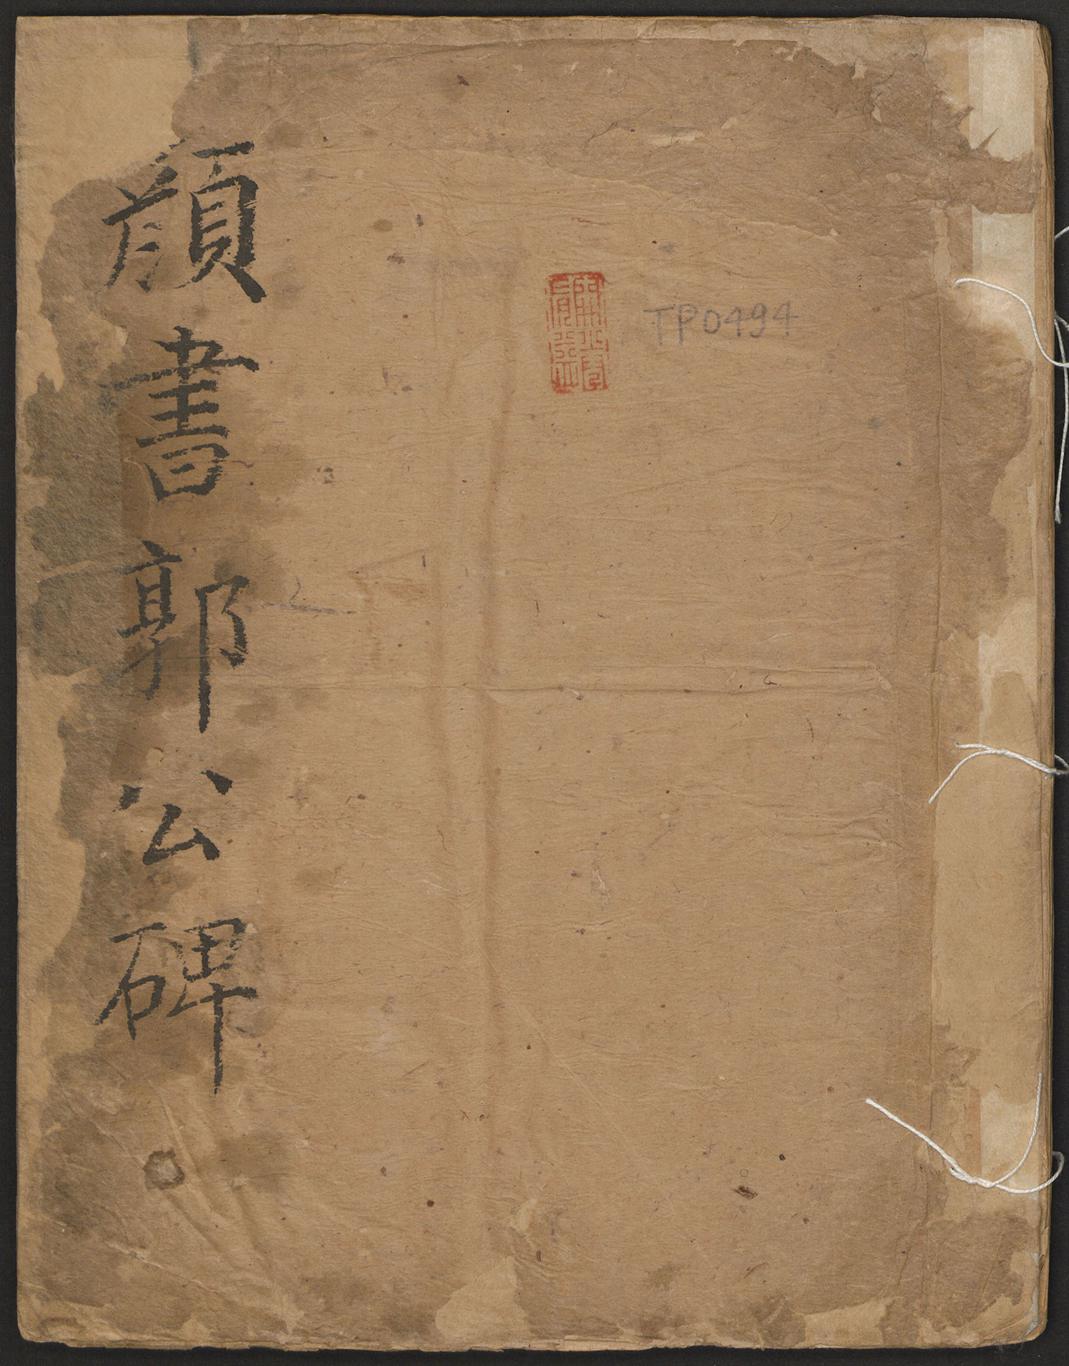 顔書郭公碑
TP0494